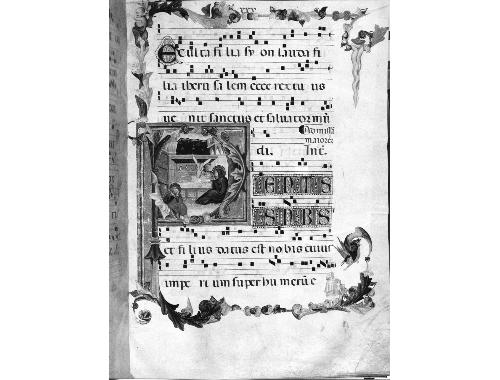 XXX
Exulta filia syon lauda fi
lia iherusalem ecce rex tuus
ue nit sanctus et saluator mun
di. Int.
Ad missa
maiore
PUER NATUS
EST NOBIS
et filius datus est nobis cuius
impe ri um super humerū e